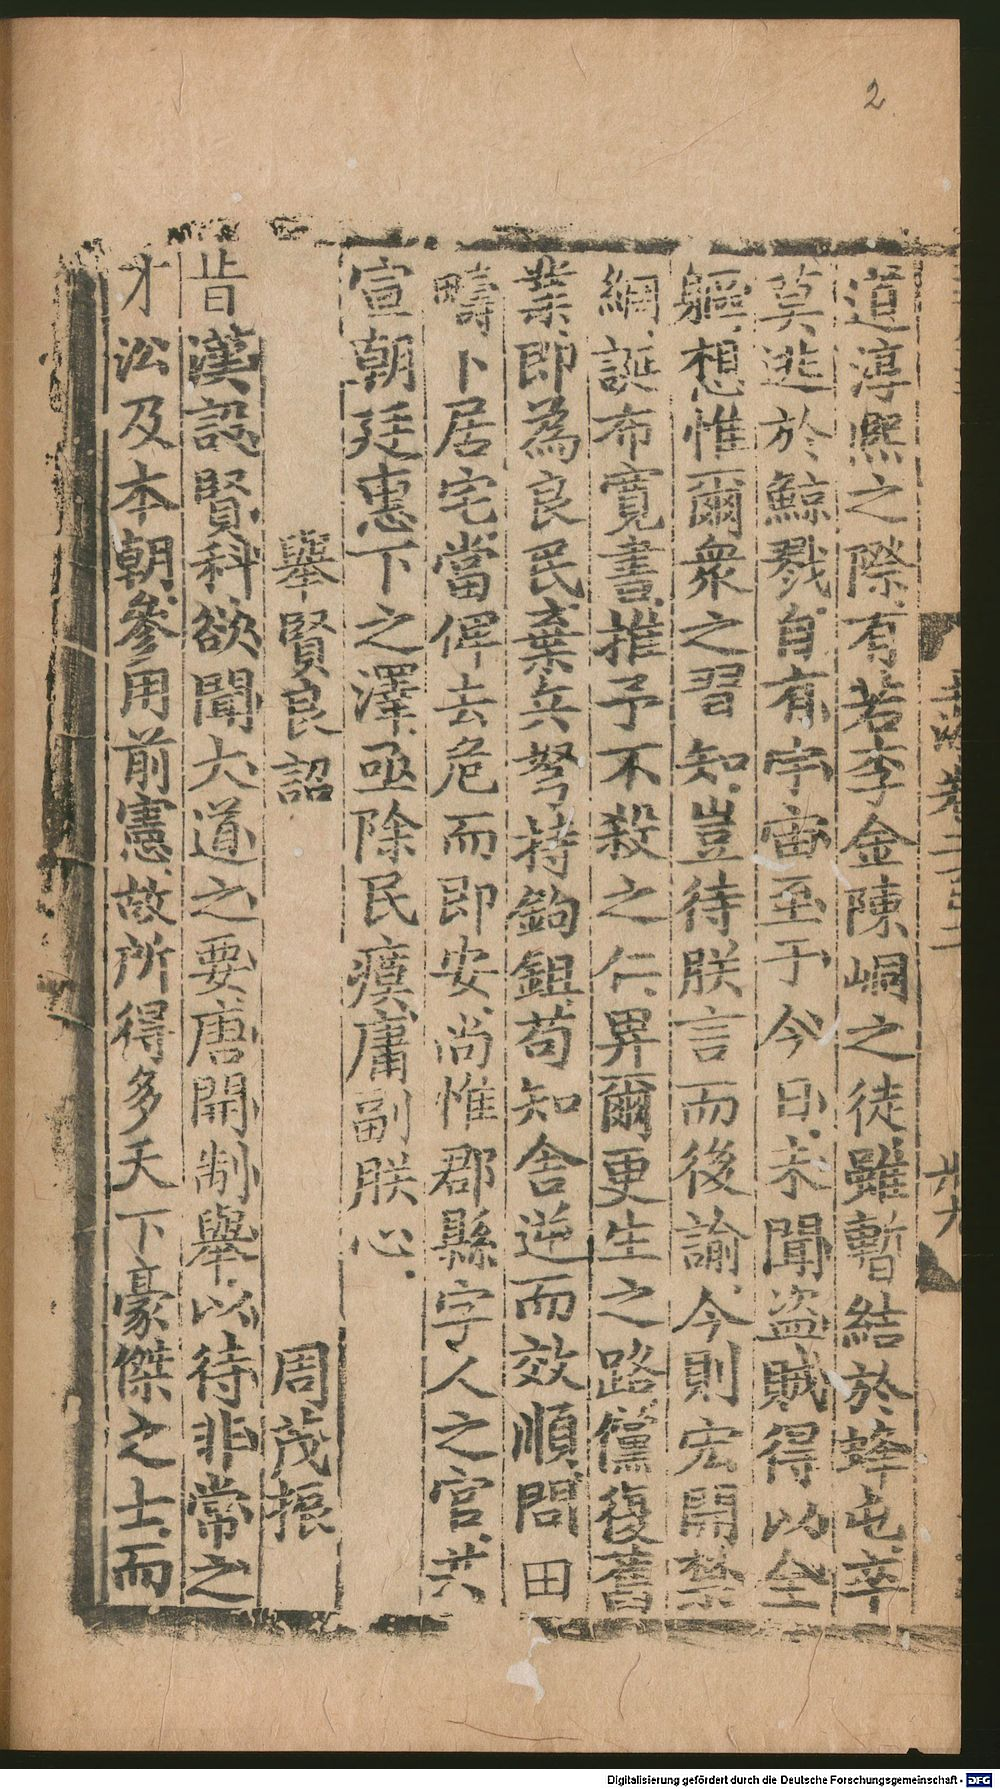 2
道淳熙之際有若李金陳峒之徒雖暫結於蜂屯卒
莫逃於鯨戮自有宇宙至于今日未聞盜賊得以全
軀想惟爾衆之習知豈待朕言而後諭今則宏開禁
網誕布寬書推予不殺之仁畀爾更生之路儻復舊
業即為良民棄兵弩持鉤鉏苟知舍逆而效順問田
疇卜居宅當俾去危而即安尚惟郡縣字人之官共
宣朝廷惠下之澤亟除民瘼庸副朕心
舉賢良詔 周茂振
昔漢設賢科欲聞大道之要唐開制舉以待非常之
才洪及本朝參用前憲故所得多天下豪傑之士而
Digitalisierung gefördert durch die Deutsche Forschungsgemeinschaft - DFG